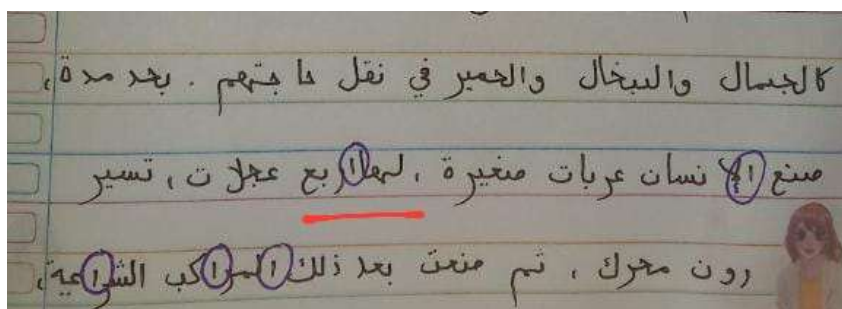 كالجمال والبيخال والحمير في نقل حاجتهم . بعد مدة،
صنع الإنسان عربات صغيرة ، لها اربع عجلات ، تسير
دون محرك ، ثم صنعت بعد ذلك المراكب الشراعية،